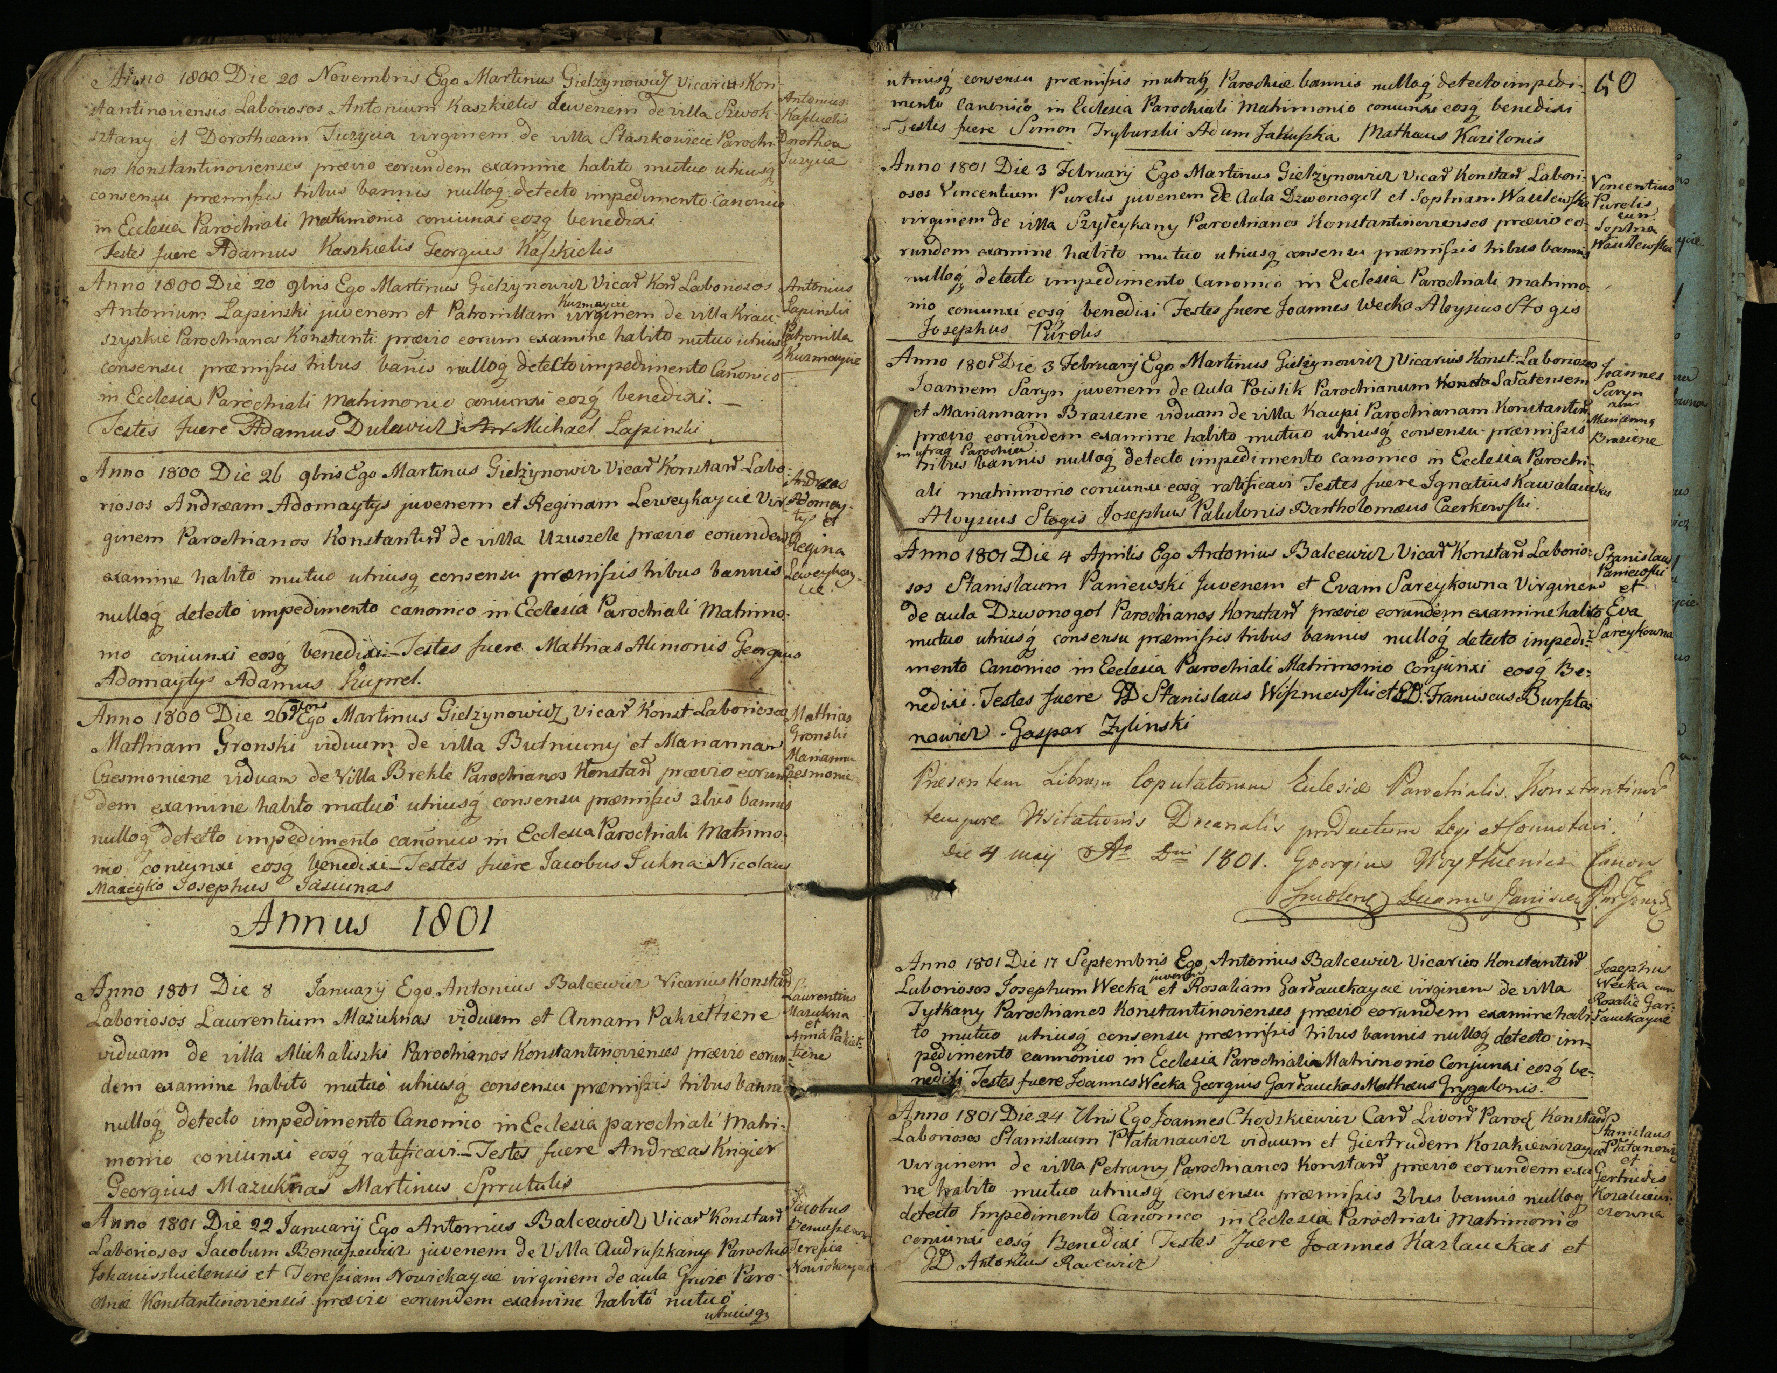 Anno 1800 Die 20 Novembris Ego Martinus Giełzynowicz Vicarius Kon-
stantinoviensis Laboriosos Antonium Kaszkielis juvenem de villa Szwok
sztany et Dorotheam Juzycia virginem de villa Staszkowizcie Parochi-
nos Konstantinovienses prævio eorundem examine habito mutuo utriusq
consensu præmissis tribus bannis nulloq detecto impedimento Canonico
in Ecclesia Parochiali Matrimonio coniunxi eosq benedixi
Testes fuere Adamus Kaszkielis Georgius Kaszkielis
Antonius
Kaszkielis
Dorothea
Juzycia
Anno 1800 Die 20 9bris Ego Martinus Giełzynowicz Vicar Kon Laboriosos
Antonium Lapinski juvenem et Patronillam Kuzmaycie virginem de villa Krau-
szyszkie Parochianos Konstanti: prævio eorum examine habito mutuo utriusq
consensu præmissis tribus banis nulloq detecto impedimento Canonico
in Ecclesia Parochiali Matrimonio coniunxi eosq benedixi.
Testes fuere Adamus Dulewicz Michael Lapinski
Antonius
Lapinskis
Patronilla
Kuzmaycie
Anno 1800 Die 26 9bris Ego Martinus Giełzynowicz Vicar Konstant Labo-
riosos Andream Adomaytys juvenem et Reginam Leweykaycie Vir
ginem Parochianos Konstantin de villa Uzuszele prævio eorundem
examine habito mutuo utriusq consensu præmissis tribus bannis
nulloq detecto impedimento canonico in Ecclesia Parochiali Matrimo-
nio coniunxi eosq benedixi Testes fuere Mathias Alimonis Georgius
Adomaytys Adamus Kuprel.
Andreas
Adomay-
tys et
Regina
Leweykay-
cie
Anno 1800 Die 26 9bris Ego Martinus Giełzynowicz Vicar Konst Laboriosos
Mathiam Gronski viduum de villa Butniuny et Mariannam
Czesmoniene viduam de Villa Brekle Parochianos Konstan prævio eorun
dem examine habito mutuo utriusq consensu præmissis 3bus bannis
nulloq detecto impedimento canonico in Ecclesia Parochiali Matrimo-
nio coniunxi eosq benedixi Testes fuere Jacobus Sukna Nicolaus
Maxeyko Josephus Jasiunas
Mathias
Gronski
Marianna
Czesmonie
Annus 1801
Anno 1801 Die 8 January Ego Antonius Balcewicz Vicarius Konstan
Laboriosos Laurentium Mazuknas viduum et Annam Pakiettiene
viduam de villa Michaliszki Parochianos Konstantinovienses prævio eorun
dem examine habito mutuo utriusq consensu præmissis tribus bannis
nulloq detecto impedimento Canonico in Ecclesia parochiali Matri-
monio coniunxi eosq ratificavi Testes fuere Andreas Kugier
Georgius Mazuknas Martinus Sprutulis
Laurentius
Mazukna
et
Anna Pakiet-
tiene
Anno 1801 Die 22 January Ego Antonius Balcewicz Vicar Konstan
Laboriosos Jacobum Benuszewicz juvenem de Villa Audruszkany Parochia
et Teressiam Nowickaycie virginem de aula Gruze Paro-
chia Konstantinoviensis prævio eorundem examine habito mutuo
utriusq
Jacobus
Teresia
Nowickaycie
50
utriusq consensu præmissis in utraq Parochia bannis nulloq detecto impedi-
mento Canonico in Ecclesia Parochiali Matrimonio coniunxi eosq benedixi
Testes fuere Simon Tryburski Adam Jakuszka Mathæus Kazilonis
Anno 1801 Die 3 February Ego Martinus Giełzynowicz Vicar Konstan Labori-
osos Vincentium Purelis juvenem de Aula Dzwonogol et Sophiam Wasilewska
virginem de villa Szyleykany Parochianos Konstantinovienses prævio eo-
rundem examine habito mutuo utriusq consensu præmissis tribus bannis
nulloq detecto impedimento Canonico in Ecclesia Parochiali matrimo
nio coniunxi eosq benedixi Testes fuere Joannes Wecka Aloysius Stogis
Josephus Purelis
Vincentius
Purelis
cum
Sophia
Wasilewska
Anno 1801 Die 3 February Ego Martinus Giełzynowicz Vicarius Konst: Laboriosos
Joannem Saryn juvenem de Aula Poistik Parochianum Konsta Salatensem
et Mariannam Braziene viduam de villa Kaupi Parochianam Konstantin
prævio eorundem examine habito mutuo utriusq consensu præmissis
in utraq Parochia
tribus bannis nulloq detecto impedimento canonico in Ecclesia Parochi-
ali matrimonio coniunxi eosq ratificavi Testes fuere Ignatius Kawalauckas
Aloysius Stogis Josephus Palulonis Bartholomæus Czerkowski.
Joannes
Saryn
cum
Marianna
Braziene
Anno 1801 Die 4 Aprilis Ego Antonius Balcewicz Vicar Konstan Laborio-
sos Stanislaum Paniewski Juvenem et Evam Sareykowna Virginem
de aula Dzwonogol Parochianos Konstan prævio eorundem examine habito
mutuo utriusq consensu præmissis tribus bannis nulloq detecto impedi-
mento Canonico in Ecclesia Parochiali Matrimonio Conjunxi eosq Be-
nedixi. Testes fuere D Stanislaus Wiszniewski et D. Franciscus Burszta-
nowicz. Gaspar Zylinski
Stanislaus
Paniewski
et
Eva
Sareykowna
Præsentem Librum Copulatorum Eclesiæ Parochialis Konstantinov
tempore Visitationis Decanalis productum legi et
Die 4 May Ao Dni 1801. Georgius Woytkiewicz Canon
Anno 1801 Die 17 Septembris Ego Antonius Balcewicz Vicarius Konstantin
Laboriosos Josephum Wecka juvenem et Rosaliam Garlauckaycie virginem de villa
Tytkany Parochianos Konstantinovienses prævio eorundem examine habi-
to mutuo utriusq consensu præmissis tribus bannis nulloq detecto im-
pedimento cannonico in Ecclesia Parochiali Matrimonio Conjunxi eosq be-
nedixi Testes fuere Joannes Wecka Georgius Garlauckas Mathæus Grygalonis
Josephus
Wecka cum
Rosalia Gar-
lauckaycie
Anno 1801 Die 24 7bris Ego Joannes Chodzkiewicz Paroch Konstan
Laboriosos Stanislaum Platanawicz viduum et Giertrudem Kozakiewiczaycie
virginem de villa Petruny Parochianos Konstan prævio eorundem exa-
ne habito mutuo utriusq consensu præmissis 3bus bannis nulloq
detecto Impedimento Canonico in Ecclesia Parochiali Matrimonio
coniunxi eosq Benedixi Testes fuere Joannes Karlauckas et
D Antonius Racewicz
Stanislaus
Platanowicz
et
Gertrudis